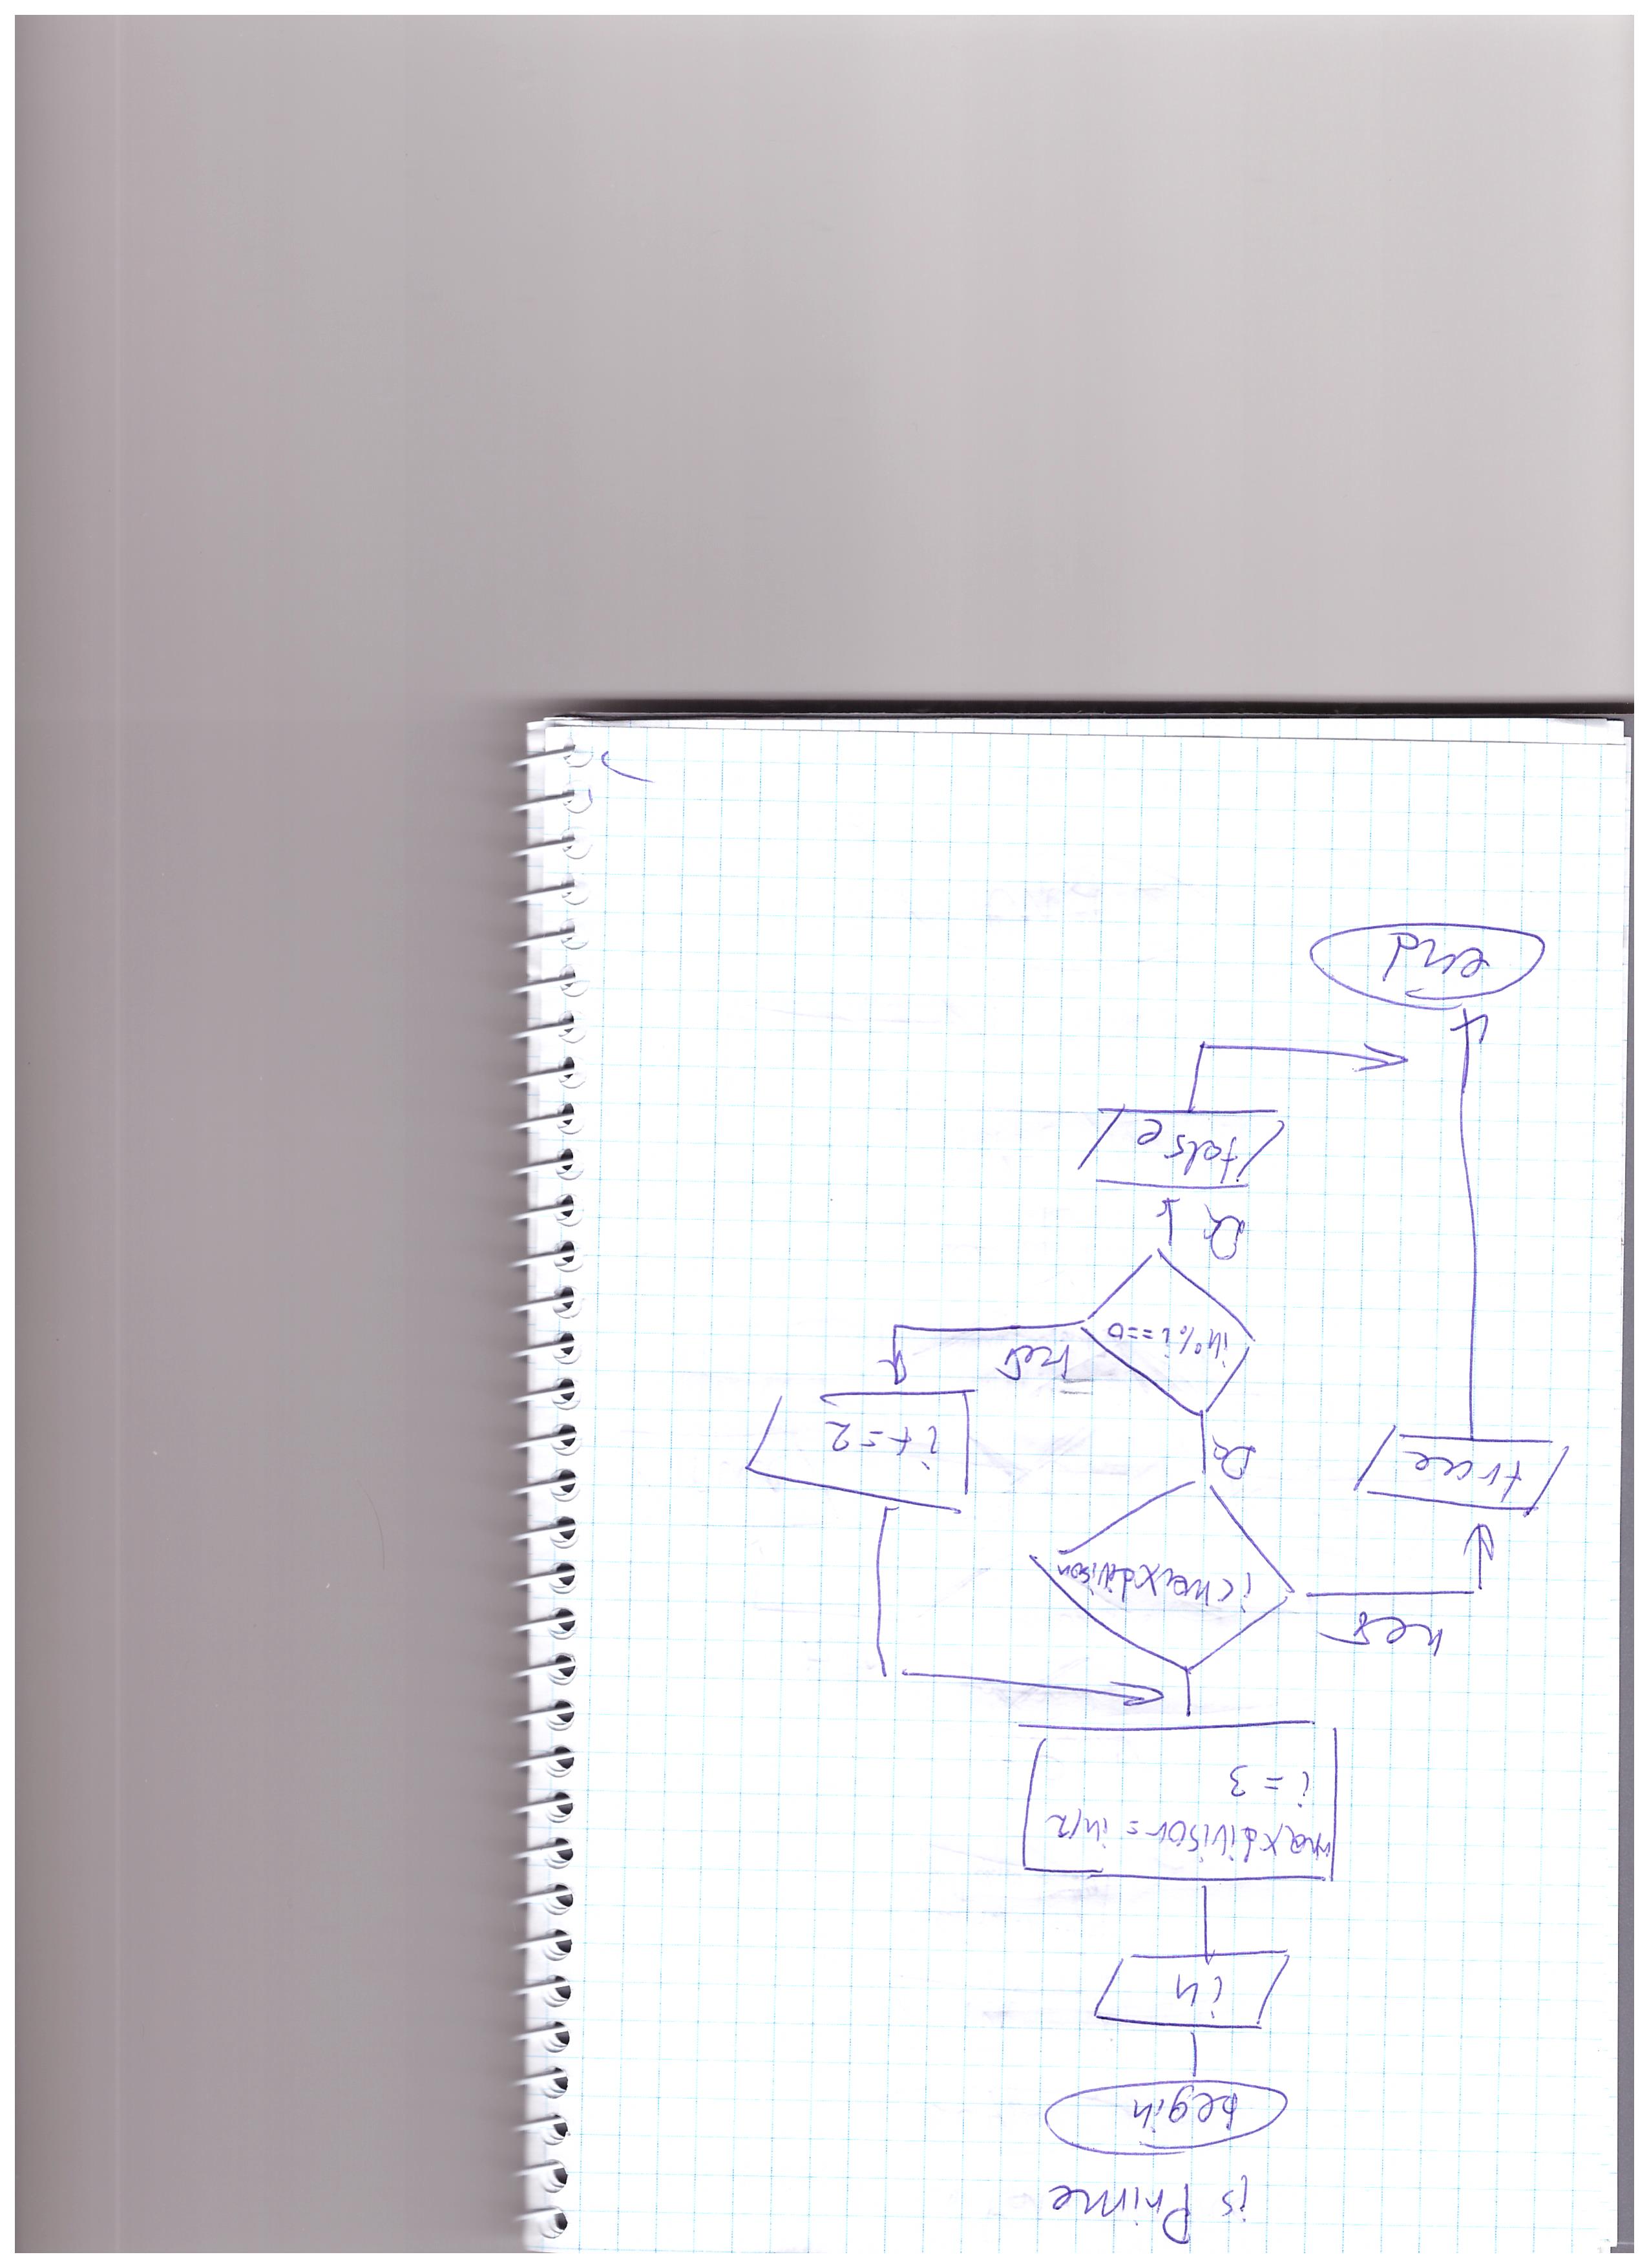 is Prime
begin
in
maxdivisor = in/2
i = 3
нет
i<maxdivison
true
Да
i+=2
in%i==0
нет
Да
false
end